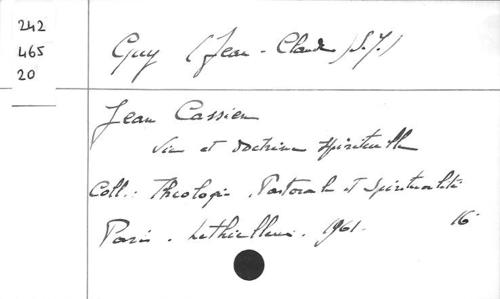 242
465
20
Guy (Jean-Claude, S.J.)
Jean Cassien
Vie et doctrine spirituelle
Coll.: Théologie, Pastorale et Spiritualité
Paris. Lethielleux. 1961. 16